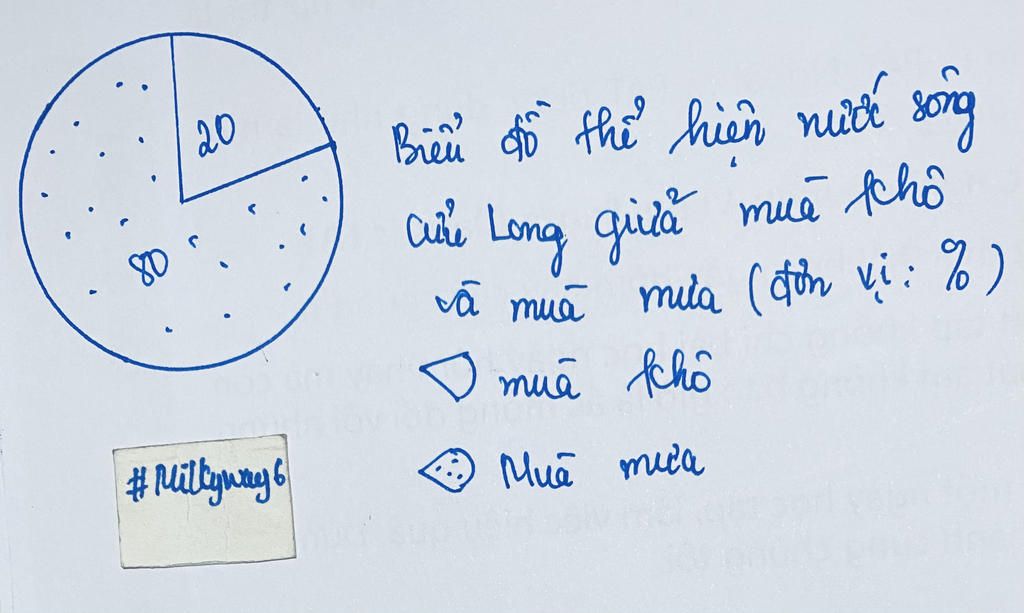 20
80
Biểu đồ thể hiện nước sông
Cửu Long giữa mùa khô
và mùa mưa (đơn vị: %)
mùa khô
Mùa mưa
#Milkyway6